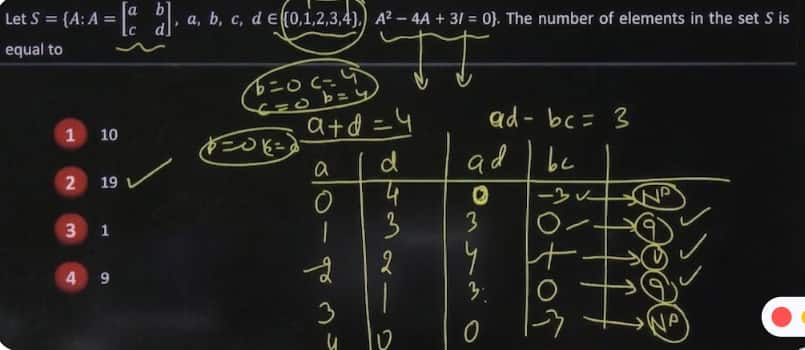 Let S = {A: A = [a b c d], a, b, c, d ∈ {0,1,2,3,4}, A² – 4A + 3I = 0}. The number of elements in the set S is
equal to
b=0 c=4
c=0 b=4
a+d=4 ad- bc= 3
1 10
2 19
3 1
4 9
a d ad bc
0 4 0 -3 NP
1 3 3 0 9
2 2 4 1
3 1 3 0 9
4 0 0 -3 NP